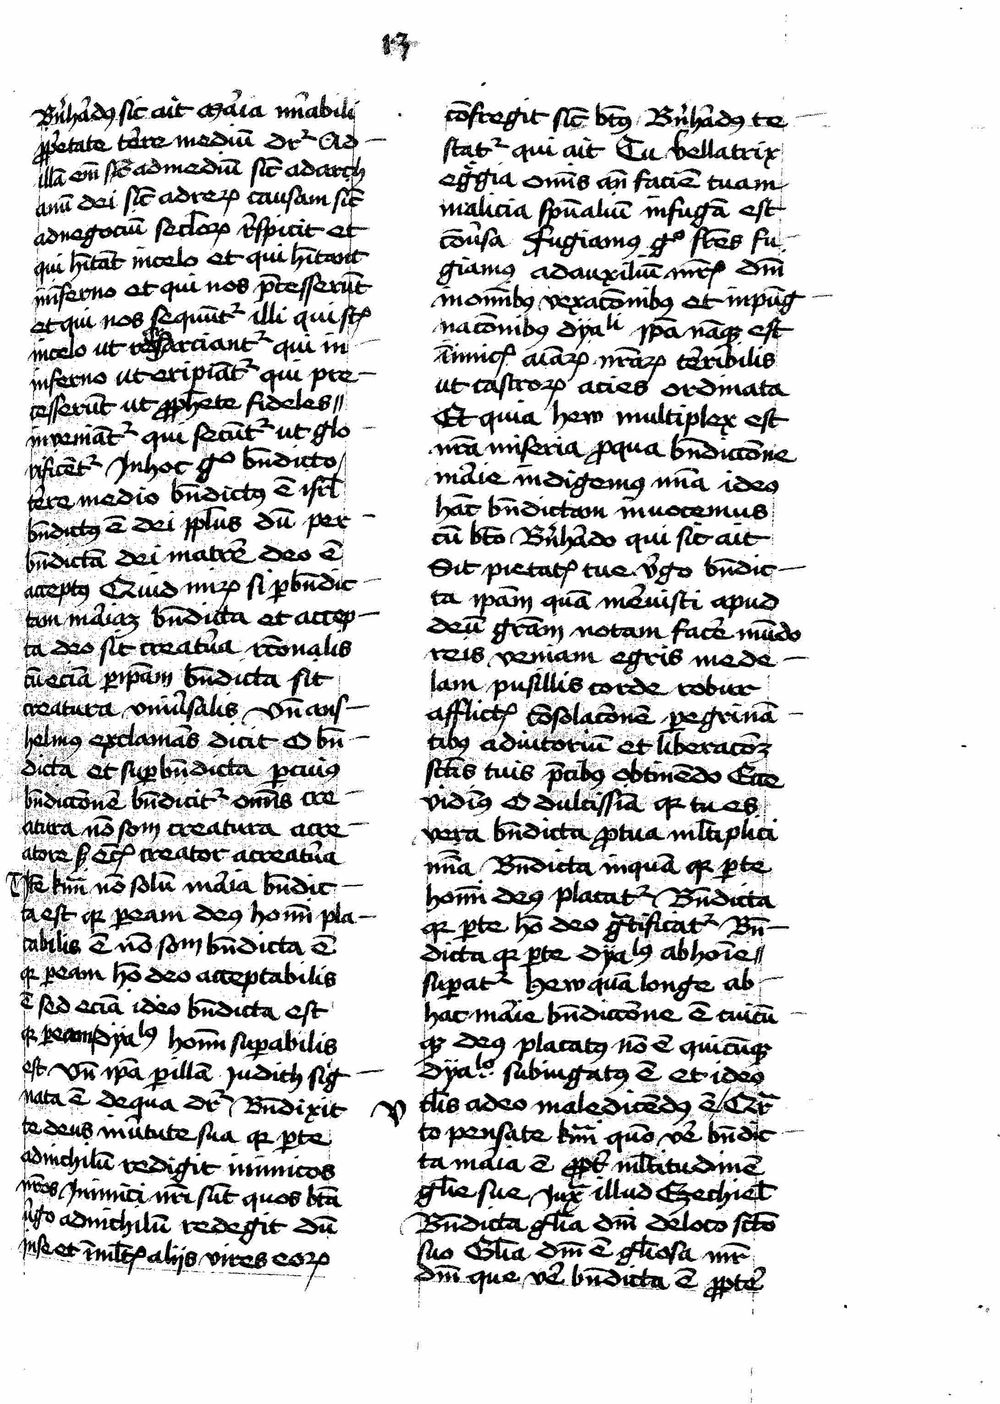 13
Bn̄hardꝰ sic ait Maria mirabili
ꝓp̄etate terre mediū dr̄ Ad
illā em̄ sic̄ ad mediū sic̄ ad arch
anū dei sic̄ ad reꝝ causam sic̄
ad negociū secloꝝ respicit et
qui hītāt in celo et qui hītant
in inferno et qui nos p̄cesserūt
et qui nos sequūtr̄ illi qui st̄
in celo ut resarciantr̄ qui in
inferno ut eripiātr̄ qui pre
cesserūt ut ꝓphete fideles
inveniātr̄ qui secūtr̄ ut glo
rificētr̄ In hoc gͦ bn̄dicto
terre medio bn̄dictꝰ ē isrl̄
bn̄dictꝰ ē dei pplūs dū per
bn̄dictā dei matrē deo ē
acceptꝰ Quid miꝝ si ꝑ bn̄dic
tam mariaꝫ bn̄dicta et accep
ta deo sit creatura rc̄onalis
cū eciā ꝑ ip̄am bn̄dicta sit
creatura uniūsalis Vn̄ ans
helmus exclamās dicit O bn̄
dicta et suꝑbn̄dicta ꝑ cuiꝰ
bn̄dicconē bn̄dicitr̄ omīs cre
atura nō som creatura a cre
atore sꝫ ecꝫ creator a creatura
Itē km̄i nō solū maria bn̄dic
ta est qꝛ ꝑ eam deꝰ homī pla
cabilis ē nō som bn̄dicta ē
qꝛ ꝑ eam hō deo acceptabilis
ē sed eciā ideo bn̄dicta est
qꝛ ꝑ eam dyaƚꝰ homī suꝑabilis
est Vn̄ ip̄a ꝑ illā Judich sig
nata ē de qua dr̄ Bn̄dixit
te deus in ūtute sua qꝛ ꝑ te
ad nichilū redigit inimicos
nr̄os Inimici nr̄i sūt quos bt̄a
v̄go ad nichilū redegit dū
in se et in ml̄tꝭ aliis vires eoꝝ
cōfregit sic̄ bt̄ꝰ Bn̄hardꝰ te
statr̄ qui ait Tu bellatrix
egregia omīs an̄ faciē tuam
malicia spūaliū in fugā est
cōūsa Fugiamꝰ gͦ fr̄es fu
giamꝰ ad auxiliū nr̄e dn̄i
in omībꝰ vexacōnibꝰ et inpūg
nacōnibꝰ dyaƚi ip̄a nāqꝫ est
inimicꝭ aīaꝝ nr̄aꝝ terribilis
ut castroꝝ acies ordinata
Et quia hew multiplex est
nr̄a miseria ꝓ qua bn̄diccōne
marie indigemꝰ mia ideo
hāc bn̄dictam invocemus
cū bt̄o Bn̄hardo qui sic ait
Sit pietatꝭ tue v̄go bn̄dic
ta ip̄am quā meruisti apud
deū grām notam facē mūdo
reis veniam egris mede
lam pusillis corde robur
afflictꝭ cōsolacōnē ꝑegrinā
tibꝰ adiutoriū et liberacōꝫ
sct̄is tuis p̄cibꝰ obtinēdo Ecce
vidimꝰ O dulcissima qꝛ tu es
vera bn̄dicta ꝓ tua ml̄tiplici
mia Bn̄dicta inquā qꝛ ꝑ te
homī deꝰ placatr̄ Bn̄dicta
qꝛ ꝑ te hō deo gratificatr̄ Bn̄
dicta qꝛ ꝑ te dyaƚꝰ ab hoīe
suꝑatr̄ hew quā longe ab
hac marie bn̄diccōne ē cuicū
qꝫ deꝰ placatꝰ nō ē quicūqꝫ
dyaƚo subiugatꝰ ē et ideo
tl̄is a deo maledicēdꝰ ē Qr̄
to pensate km̄i quō vere bn̄dic
ta maria ē ꝓpt̄ ml̄titudinē
gl̄ie sue Iux̄ illud Ezechiel̄
Bn̄dicta gl̄ia dn̄i de loco sct̄o
suo Gl̄ia dn̄i ē gl̄iosa nr̄
dn̄i que vere bn̄dicta ē ꝓpt̄er